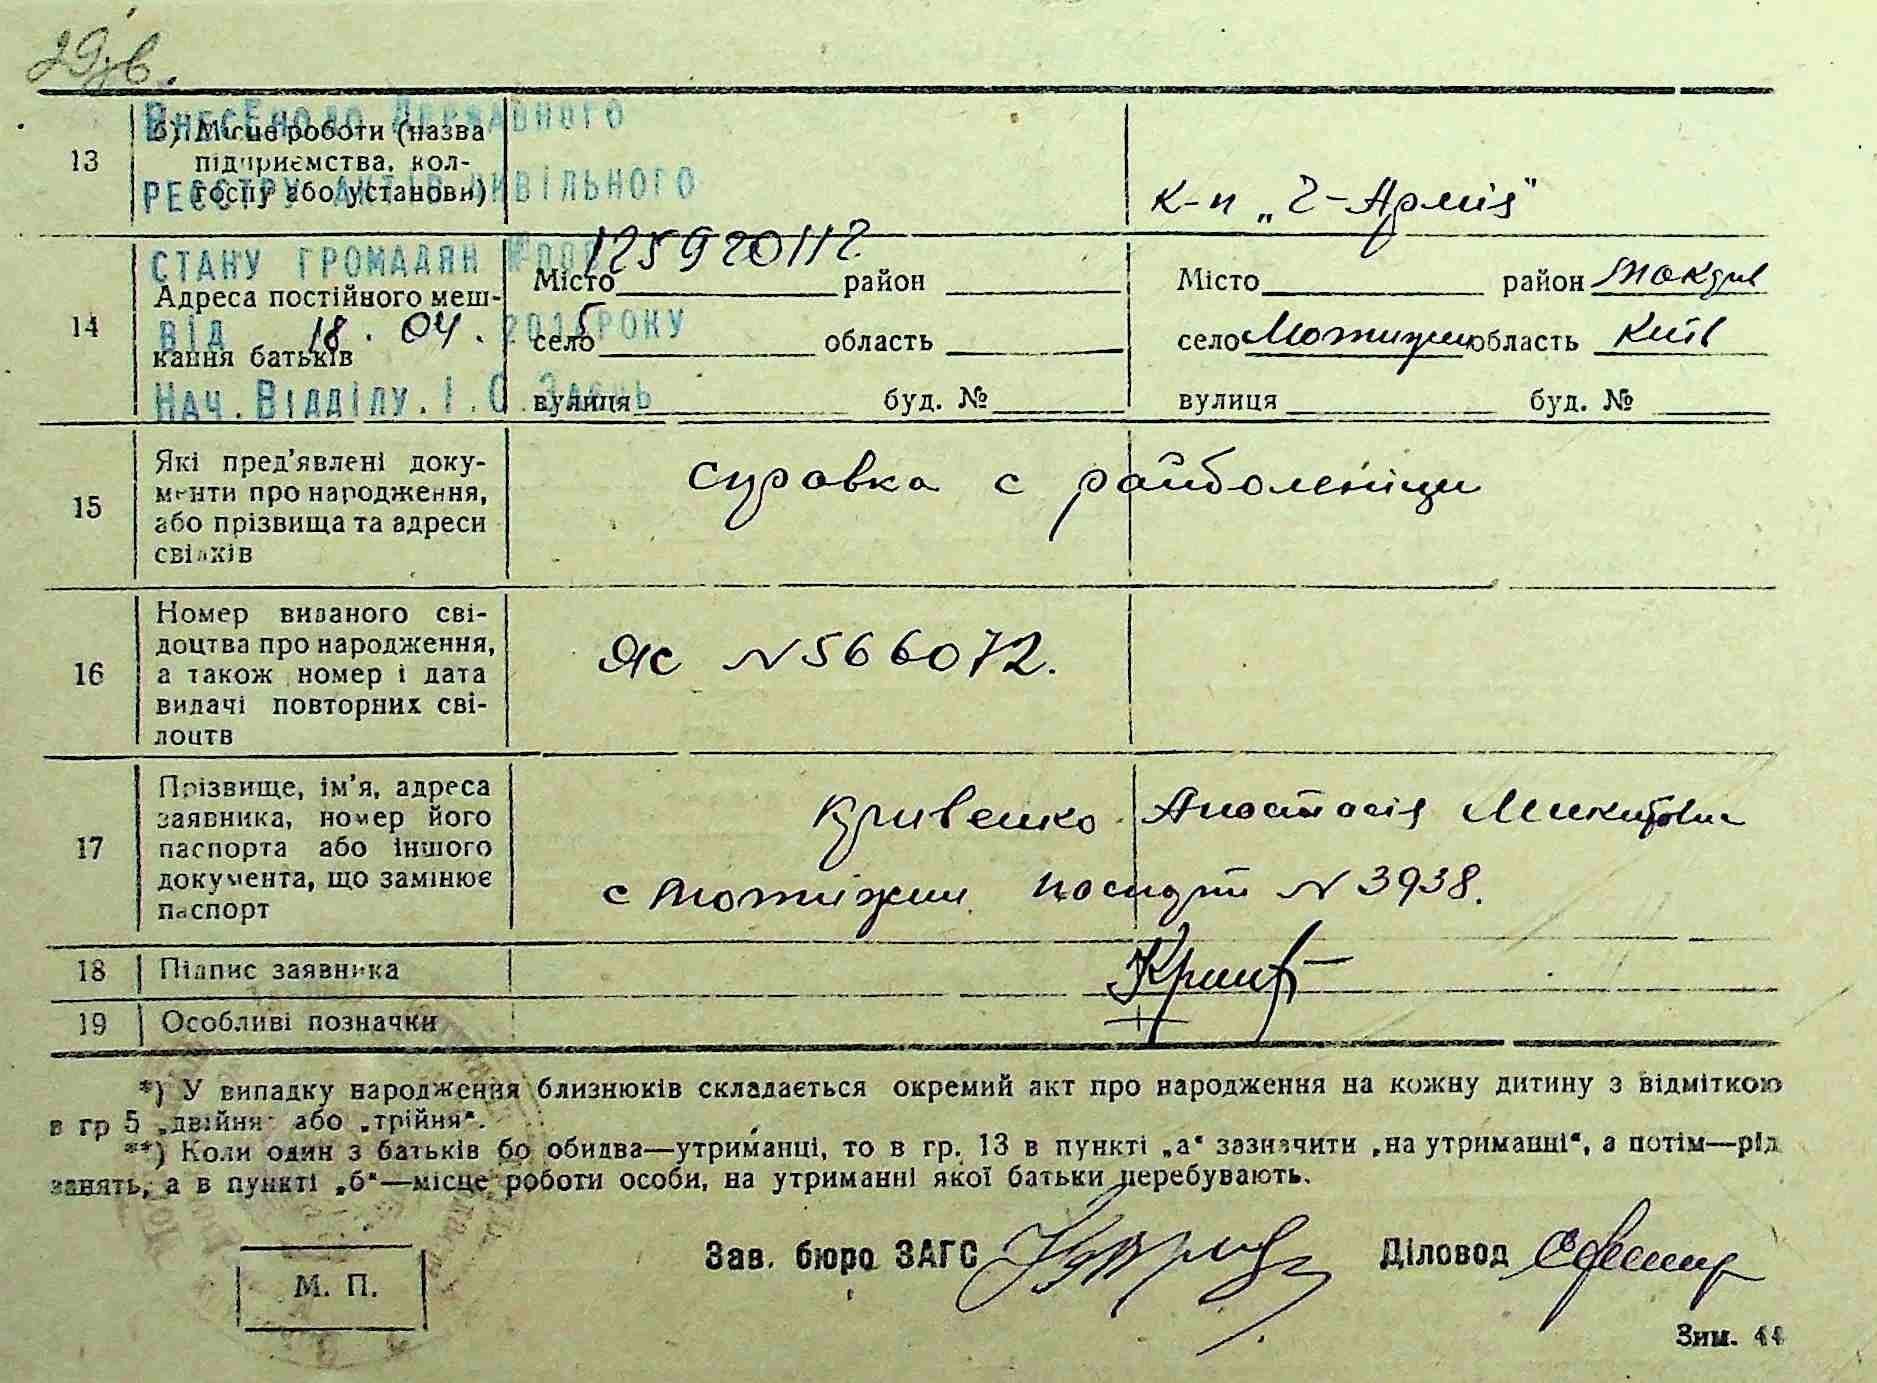 29зв.
13
б) Місце роботи (назва
підприємства, кол-
госпу або установи)
к-п „Ч-Армія"
ВНЕСЕНО ДО ДЕРЖАВНОГО
РЕЄСТРУ АКТІВ ЦИВІЛЬНОГО
СТАНУ ГРОМАДЯН №000125920112
ВІД 18.04.2015 РОКУ
НАЧ.ВІДДІЛУ.І.О.
14
Адреса постійного меш-
кання батьків
Місто район
село область
вулиця буд. №
Місто район Макарів
село Мотижин область Київ
вулиця буд. №
15
Які пред'явлені доку-
менти про народження,
або прізвища та адреси
свідків
справка с райболеніци
16
Номер виданого сві-
доцтва про народження,
а також номер і дата
видачі повторних сві-
доцтв
ЯС N 566072.
17
Прізвище, ім'я, адреса
заявника, номер його
паспорта або іншого
документа, що замінює
паспорт
Кривенко Анастасія Микитовна
с Мотижин N 3938.
18
Підпис заявника
19
Особливі позначки
*) У випадку народження близнюків складається окремий акт про народження на кожну дитину з відміткою
в гр 5 „двійня" або „трійня".
**) Коли один з батьків бо обидва—утриманці, то в гр. 13 в пункті „а" зазначити „на утриманні", а потім—рід
занять, а в пункті „б"—місце роботи особи, на утриманні якої батьки перебувають.
Зав. бюро ЗАГС
Діловод
М. П.
Зим. 44